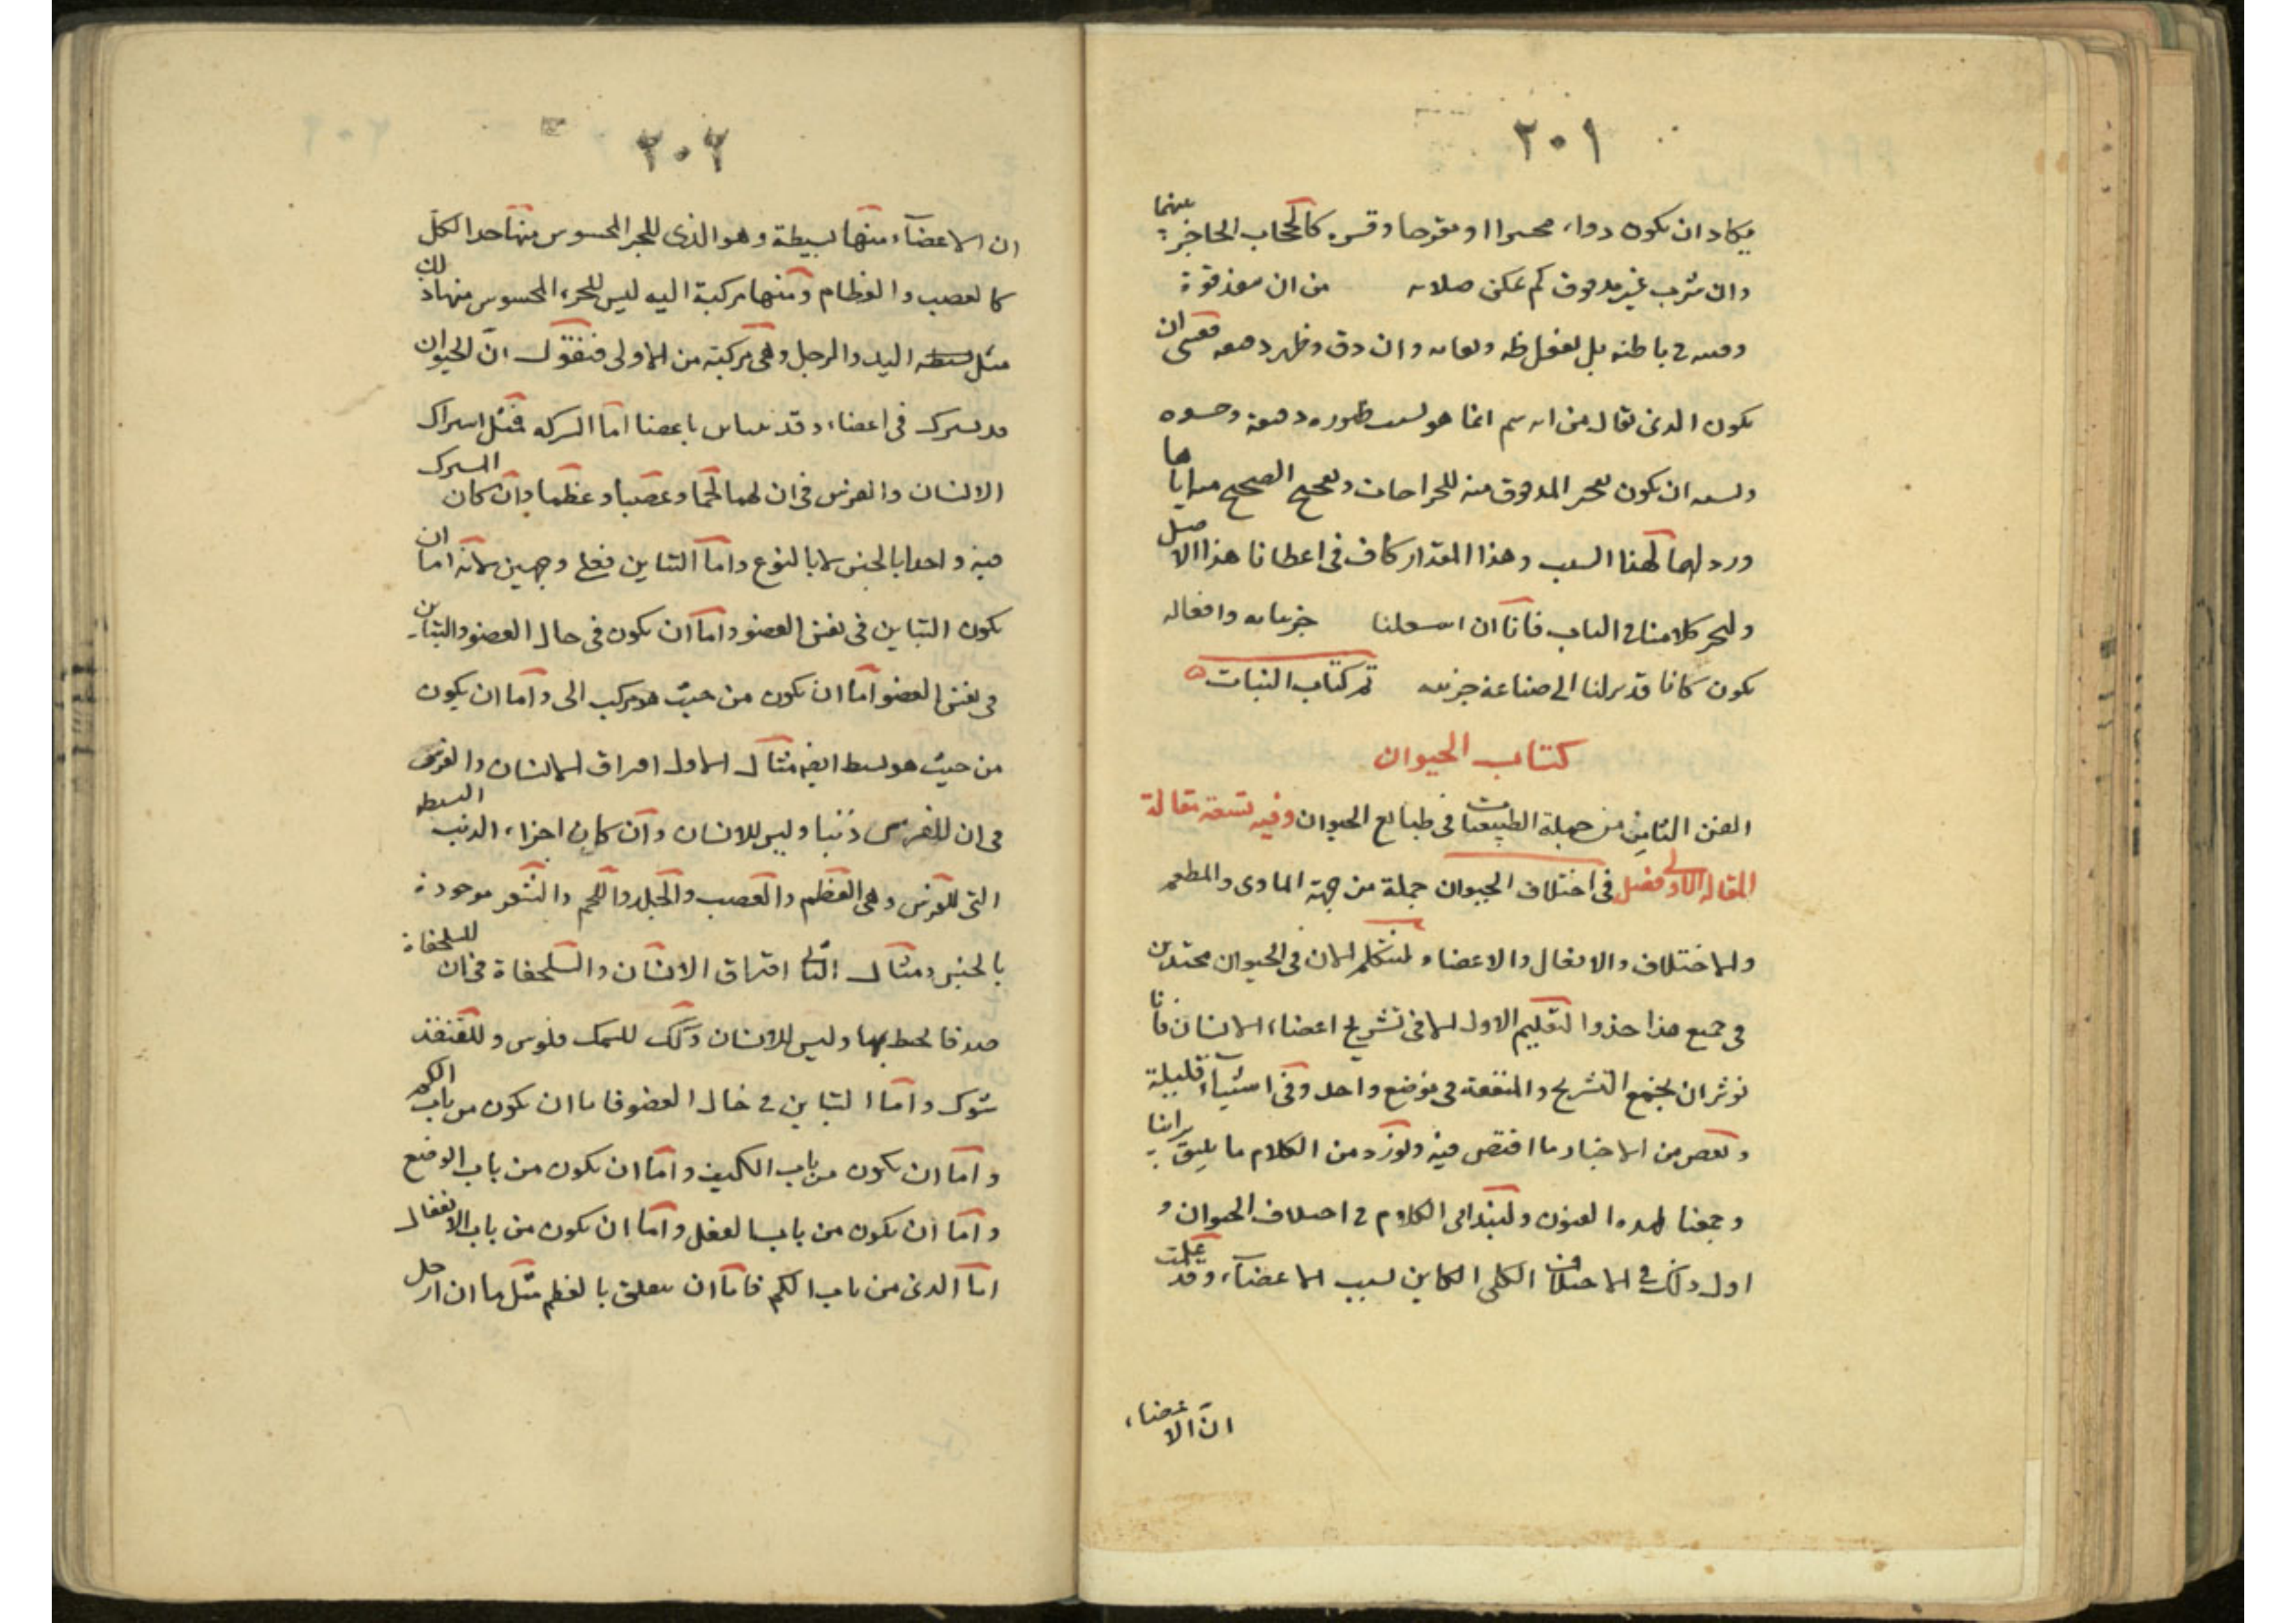 ٢٠١
يكاد ان يكون دواء محمرا او مقرحا وقسره كالحجاب الحاجز بينهما
وان شرب غير مدقوق لم يمكن صلابه من ان ينفذ قوة
في باطنه بل لفعل ظه ولعابه وان دق وظهر دهنه فعسى ان
يكون الذى يقال من انه سم انما هو لسبب ظهوره دهنه
ان يكون لحر المدقوق منه للجراحات الصحيح اياها
ورد لهما لهذا السبب وهذا المقدار كاف في اعطانا هذا الاصل
كلامنا في النبات فانا ان اشتغلنا جزئياته وافعاله
يكون كانا قد نزلنا الى صناعة جزئيه تم كتاب النبات
كتاب الحيوان
الفن الثامن من جملة الطبيعيات في طبايع الحيوان وفيه تسعة مقالة
المقاله الاولى فصل في اختلاف الحيوان جملة من جهة الماوى والمطعم
والاختلاف والافعال والاعضاء لنتكلم الان في الحيوان محتذين
في جميع هذا حذو التعليم الاول الا في تشريح اعضاء الانسان فانا
نوثر ان نجمع التشريح والمنفعة في موضع واحد وفي اشياء قليلة
ونقص من الاخبار ما اقتص فيه ونورد من الكلام ما يليق برأينا
وجمعنا لهذه الفنون ولنبتدئ الكلام في اختلاف الحيوان و
اول ذلك في الاختلاف الكلى الكاين لسبب الاعضاء، وقد علمت
ان الاعضاء،
٢٠٢
ان الاعضاء منها بسيطة وهو الذى للجز المحسوس منها حد الكل
كالعصب والعظام ومنها مركبة اليه ليس للجزء المحسوس منها ذلك
مثل بسيطه اليد والرجل وهى مركبة من الاولى فنقول ان الحيوان
قد يشترك في اعضاء وقد يتباين باعضا اما الشركه فمثل اشتراك
الانسان والفرس في ان لهما لحما وعصبا وعظما وان كان المشترك
فيه واحدا بالجنس لا بالنوع واما التباين فعلى وجهين لانه اما ان
يكون التباين في نفس العضو واما ان يكون في حال العضو والتباين
في نفس العضو اما ان يكون من حيث هو مركب الى واما ان يكون
من حيث هو بسيط ايضه مثال الاول افتراق الانسان والفرس
في ان للفرس ذنبا وليس للانسان وان كان اجزاء الذنب البسيطه
التى للفرس وهى العظم والعصب والجلد واللحم والشعر موجودة
بالجنس ومثال الثانى افتراق الانسان والسلحفاة في ان للسلحفاة
صدفا يحيط بها وليس للانسان وكذلك للسمك فلوس وللقنفذ
شوك واما التباين في حال العضو فاما ان يكون من باب الكم
واما ان يكون من باب الكيف واما ان يكون من باب الوضع
واما ان يكون من باب الفعل واما ان يكون من باب الانفعال
اما الذى من باب الكم فاما ان يتعلق بالعظم مثل ما ان ارجل